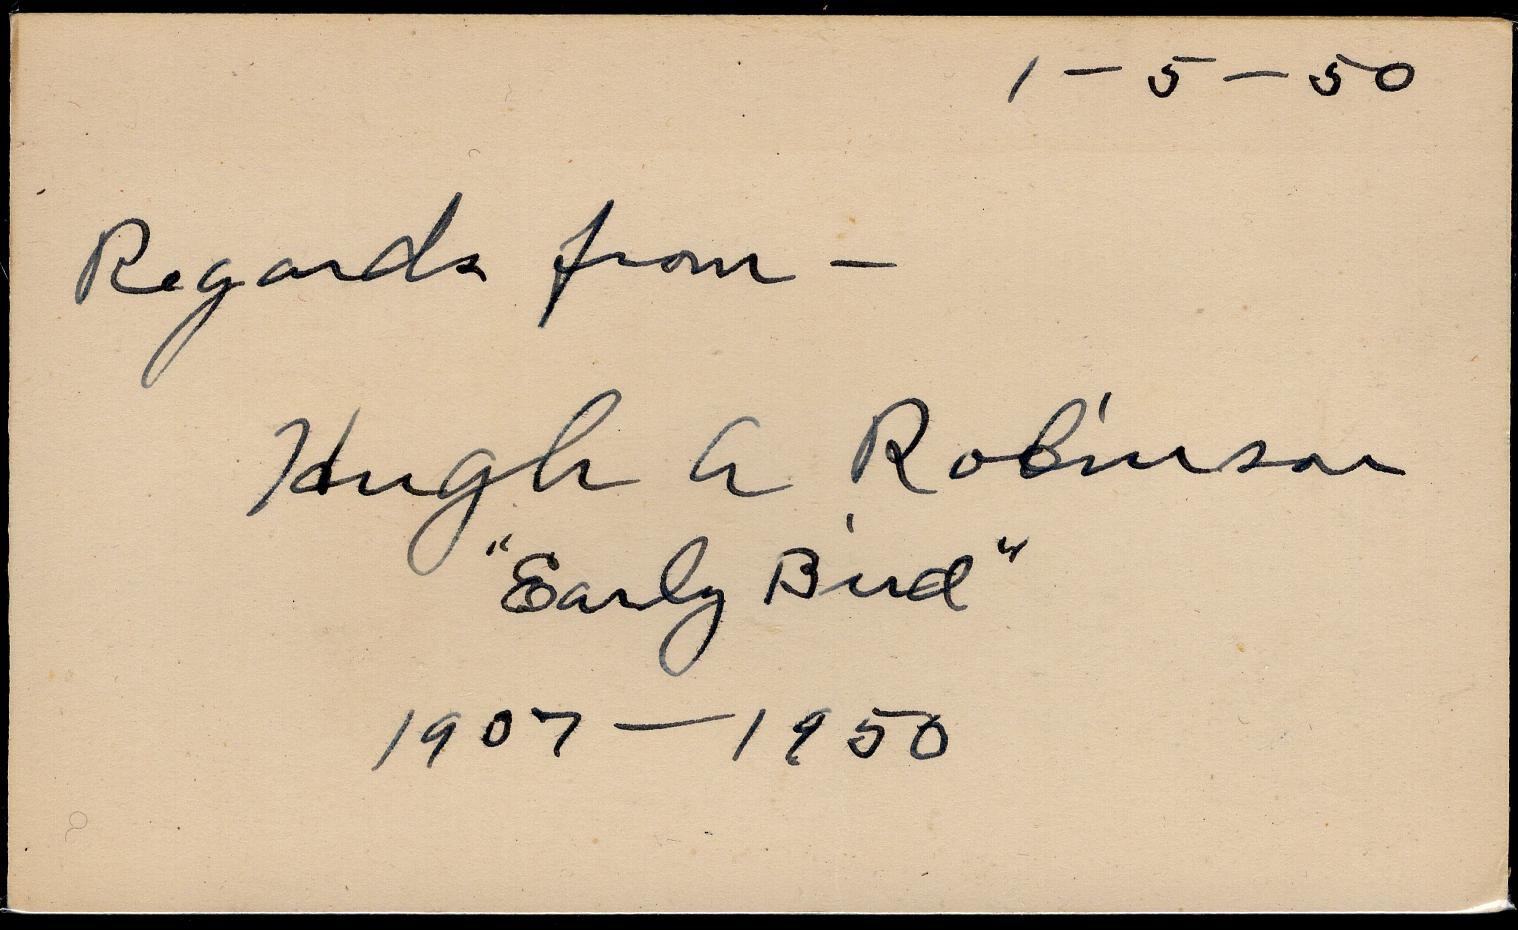 1-5-50
Regards from -
Hugh A Robinson
"Early Bird"
1907-1950